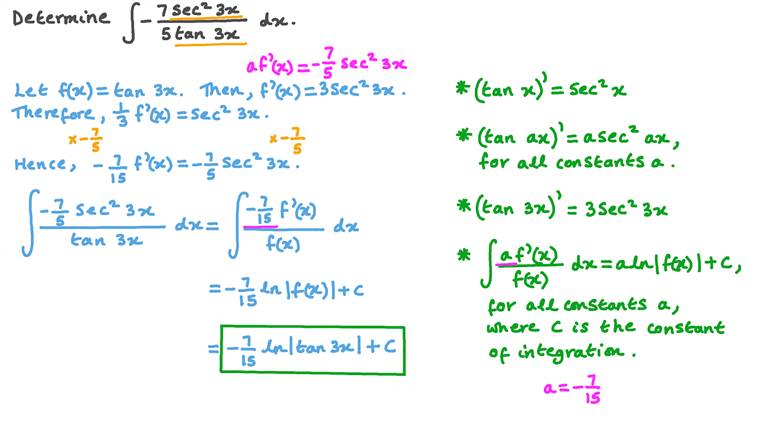 Determine ∫ - 7 sec² 3x / 5 tan 3x dx.
a f'(x) = -7/5 sec² 3x
Let f(x) = tan 3x. Then, f'(x) = 3 sec² 3x.
Therefore, 1/3 f'(x) = sec² 3x.
× -7/5 × -7/5
Hence, -7/15 f'(x) = -7/5 sec² 3x.
∫ (-7/5 sec² 3x) / (tan 3x) dx = ∫ (-7/15 f'(x)) / (f(x)) dx
= -7/15 ln|f(x)| + C
= -7/15 ln|tan 3x| + C
* (tan x)' = sec² x
* (tan ax)' = a sec² ax,
for all constants a.
* (tan 3x)' = 3 sec² 3x
* ∫ a f'(x) / f(x) dx = a ln|f(x)| + C,
for all constants a,
where C is the constant
of integration.
a = -7/15